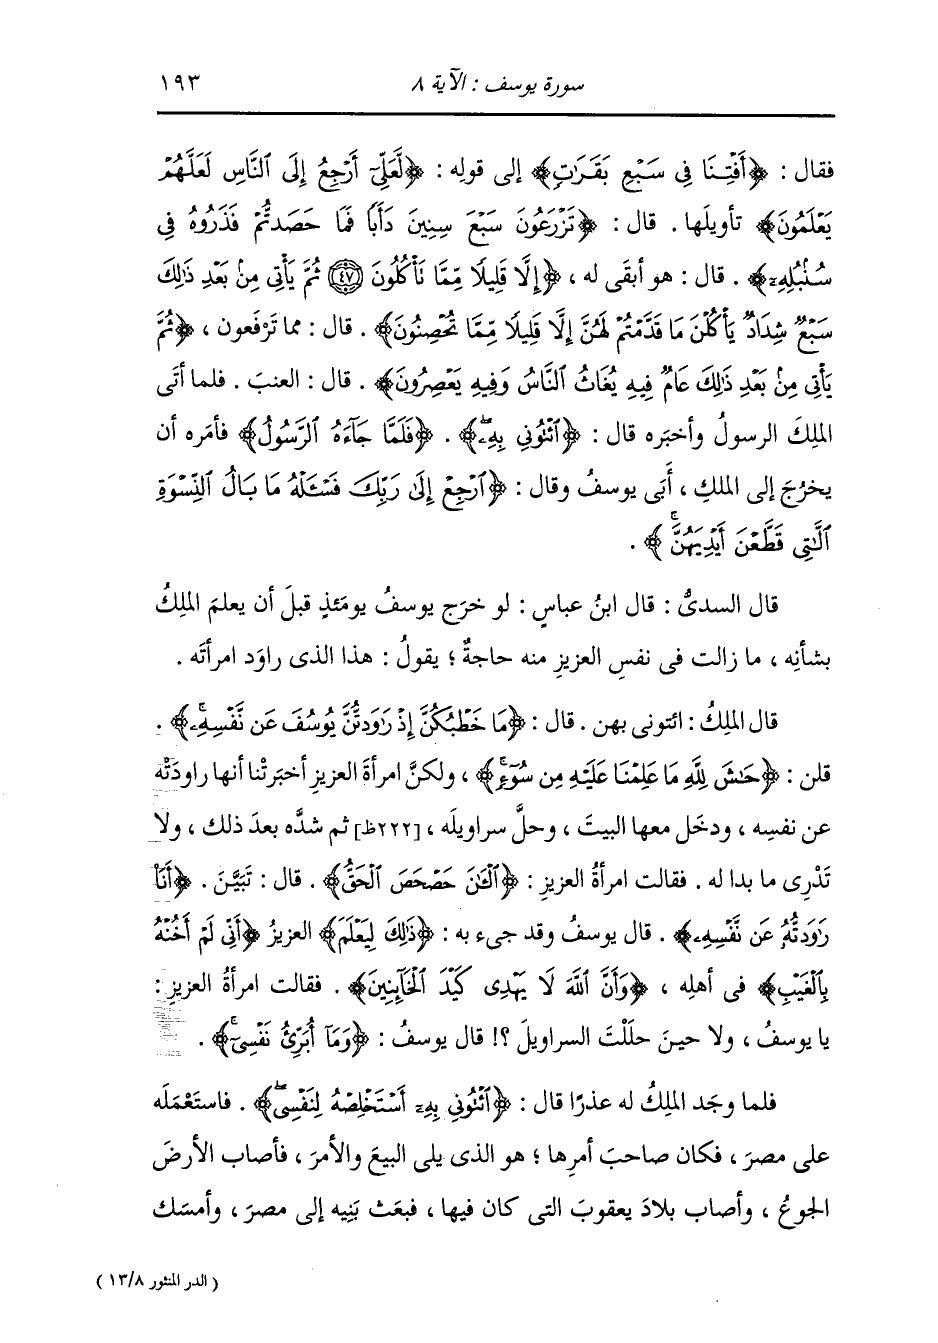 سورة يوسف : الآية ٨ ١٩٣
فقال : ﴿أَفْتِنَا فِى سَبْعِ بَقَرَٰتٍ﴾ إلى قولِه : ﴿لَّعَلِّىٓ أَرْجِعُ إِلَى ٱلنَّاسِ لَعَلَّهُمْ
يَعْلَمُونَ﴾ تأويلَها . قال : ﴿تَزْرَعُونَ سَبْعَ سِنِينَ دَأَبًا فَمَا حَصَدتُّمْ فَذَرُوهُ فِى
سُنۢبُلِهِۦٓ﴾ . قال : هو أبقَى له ، ﴿إِلَّا قَلِيلًا مِّمَّا تَأْكُلُونَ ﴿٤٧﴾ ثُمَّ يَأْتِى مِنۢ بَعْدِ ذَٰلِكَ
سَبْعٌ شِدَادٌ يَأْكُلْنَ مَا قَدَّمْتُمْ لَهُنَّ إِلَّا قَلِيلًا مِّمَّا تُحْصِنُونَ﴾ . قال : مما تَرْفَعون ، ﴿ثُمَّ
يَأْتِى مِنۢ بَعْدِ ذَٰلِكَ عَامٌ فِيهِ يُغَاثُ ٱلنَّاسُ وَفِيهِ يَعْصِرُونَ﴾ . قال : العنبَ . فلما أتَى
الملِكَ الرسولُ وأخبَره قال : ﴿ٱئْتُونِى بِهِۦ ۖ﴾ . ﴿فَلَمَّا جَآءَهُ ٱلرَّسُولُ﴾ فأمَره أن
يخرُجَ إلى الملكِ ، أَبَى يوسفُ وقال : ﴿ٱرْجِعْ إِلَىٰ رَبِّكَ فَسْـَٔلْهُ مَا بَالُ ٱلنِّسْوَةِ
ٱلَّٰتِى قَطَّعْنَ أَيْدِيَهُنَّ ۚ﴾ .
قال السدىُّ : قال ابنُ عباسٍ : لو خرَج يوسفُ يومَئذٍ قبلَ أن يعلمَ الملِكُ
بشأنِه ، ما زالت فى نفسِ العزيزِ منه حاجةٌ ؛ يقولُ : هذا الذى راوَد امرأتَه .
قال الملِكُ : ائتونى بهن . قال : ﴿مَا خَطْبُكُنَّ إِذْ رَٰوَدتُّنَّ يُوسُفَ عَن نَّفْسِهِۦ ۚ﴾ .
قلن : ﴿حَٰشَ لِلَّهِ مَا عَلِمْنَا عَلَيْهِ مِن سُوٓءٍ ۚ﴾ ، ولكنَّ امرأةَ العزيزِ أخبَرتْنا أنها راودَتْه
عن نفسِه ، ودخَل معها البيتَ ، وحلَّ سراويلَه ، [٢٢٢ظ] ثم شدَّه بعدَ ذلك ، ولا
تَدْرِى ما بدا له . فقالت امرأةُ العزيزِ : ﴿ٱلْـَٰٔنَ حَصْحَصَ ٱلْحَقُّ﴾ . قال : تَبَيَّنَ . ﴿أَنَا۠
رَٰوَدتُّهُۥ عَن نَّفْسِهِۦ﴾ . قال يوسفُ وقد جىء به : ﴿ذَٰلِكَ لِيَعْلَمَ﴾ العزيزُ ﴿أَنِّى لَمْ أَخُنْهُ
بِٱلْغَيْبِ﴾ فى أهلِه ، ﴿وَأَنَّ ٱللَّهَ لَا يَهْدِى كَيْدَ ٱلْخَآئِنِينَ﴾ . فقالت امرأةُ العزيزِ :
يا يوسفُ ، ولا حينَ حلَلْتَ السراويلَ ؟! قال يوسفُ : ﴿وَمَآ أُبَرِّئُ نَفْسِىٓ ۚ﴾ .
فلما وجَد الملِكُ له عذرًا قال : ﴿ٱئْتُونِى بِهِۦٓ أَسْتَخْلِصْهُ لِنَفْسِى ۖ﴾ . فاستَعْمَلَه
على مصرَ ، فكان صاحبَ أمرِها ؛ هو الذى يلى البيعَ والأمرَ ، فأصاب الأرضَ
الجوعُ ، وأصاب بلادَ يعقوبَ التى كان فيها ، فبعَث بَنِيه إلى مصرَ ، وأمسَك
( الدر المنثور ١٣/٨ )